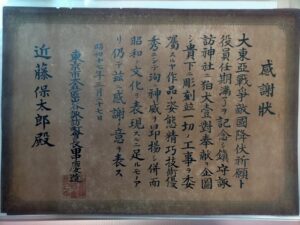 感謝狀
大東亞戰爭敵國降伏祈願ト
役員任期滿了ヲ記念シ鎮守諏
訪神社ニ狛犬壹對奉献ヲ企圖
シ貴下ニ彫刻並一切ノ工事ヲ委
囑スルヤ作品ノ姿態精巧技術優
秀ニシテ洵ニ神威ヲ昂揚シ併而
昭和ノ文化ヲ表現スルニ足ルモノア
リ仍テ茲ニ感謝ノ意ヲ表ス
昭和十 年三月二十七日
東京市 長
近藤保太郎殿